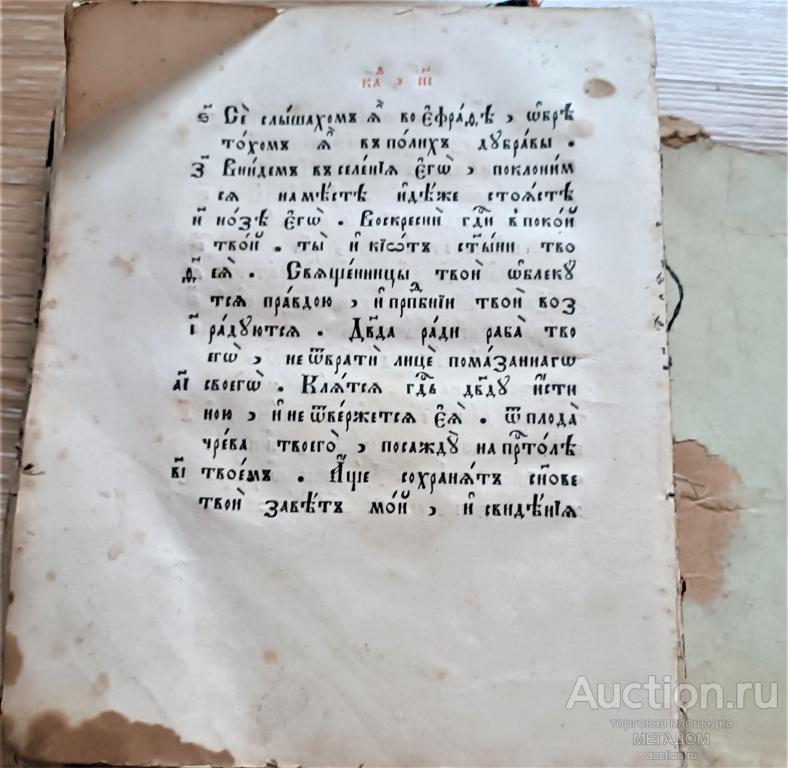 ка҃ , і҃и
ѕ҃ Сѐ слы́шахомъ ѧ҆̀ во є҆фра́ѳѣ , ѡ҆брѣ
то́хомъ ѧ҆̀ в поли́хъ дꙋбра́вы .
з҃ Вни́идемъ в селе́нїѧ є҆гѡ̀ , поклони́м
сѧ на мѣ́стѣ и҆дѣ́же стоѧ́стѣ
и҃ но́зѣ є҆гѡ̀ . Воскреснѝ гдⷭ҇и в поко́й
тво́й . ты̀ и҆ кїѡ́тъ ст҃ы́ни тво
ѳ҃ еѧ̀ . Свѧще́нницы твоѝ ѡ҆блекꙋ
тсѧ пра́вдою , и҆ прпⷣбнїи твоѝ воз
і҃ ра́дꙋютсѧ . Дв҃да ра́ди раба̀ тво
егѡ̀ , не ѿвратѝ лицѐ пома́заннагѡ
а҃і своегѡ̀ . Клѧ́тсѧ гдⷭ҇ь дв҃дꙋ и҆́сти
ною , и҆ не ѿве́ржетсѧ є҆ѧ̀ . ѿ плода̀
чре́ва твоегѡ̀ , посаждꙋ̀ на прⷭ҇то́лѣ
в҃і твоемъ . А҆́ще сохранѧ́тъ сн҃ове
твоѝ завѣ́тъ мо́й , и҆ свидѣ́нїѧ
Auction.ru
торговая площадка
МЕГАДОМ
auction.ru